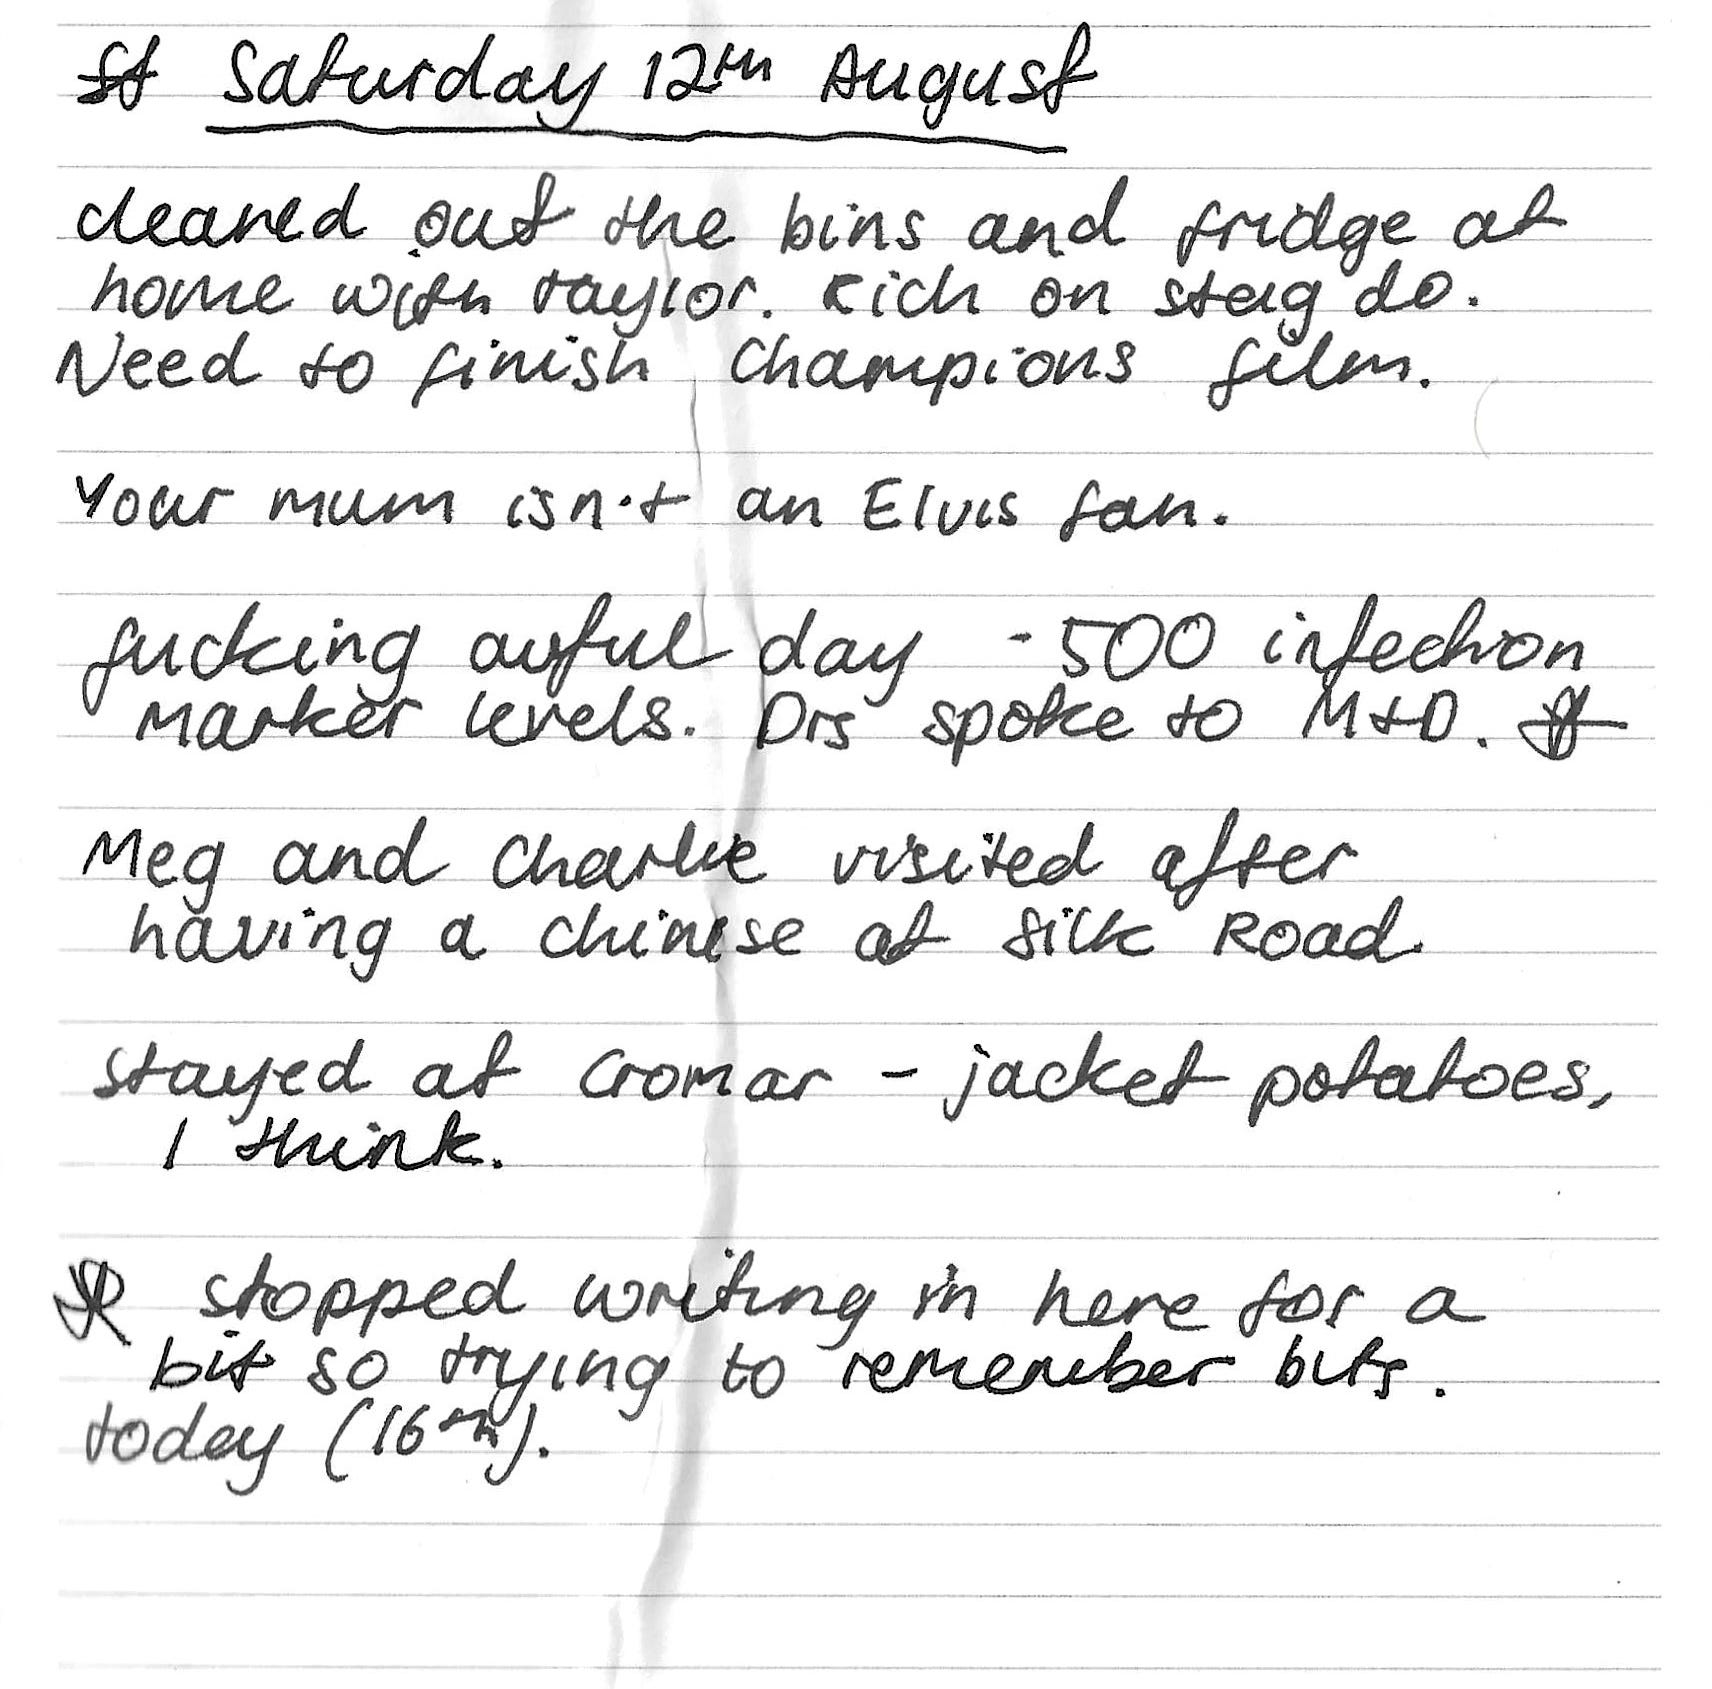 St Saturday 12th August
cleared out the bins and fridge at
home with taylor. Rich on stag do.
Need to finish Champions film.
Your mum isn't an Elvis fan.
fucking awful day - 500 infection
marker levels. Drs spoke to M+D.
Meg and Charlie visited after
having a chinese at Silk Road.
stayed at Cromar - jacket potatoes,
I think.
stopped writing in here for a
bit so trying to remember bits.
today (16th).